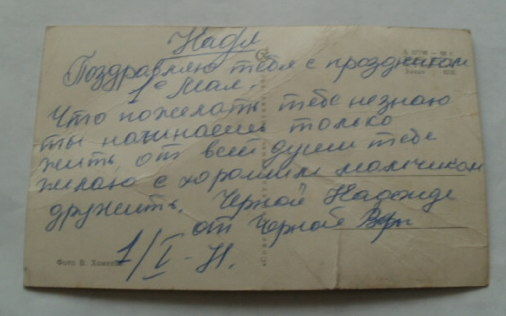 Надя
Поздравляю тебя с праздником
1е Мая.
Что пожелать тебе незнаю
ты начинаешь только
жить, от всей души тебе
желаю с хорошим мальчиком
дружить. Черной Надежде
от Черной Веры
1/V-
Фото В.